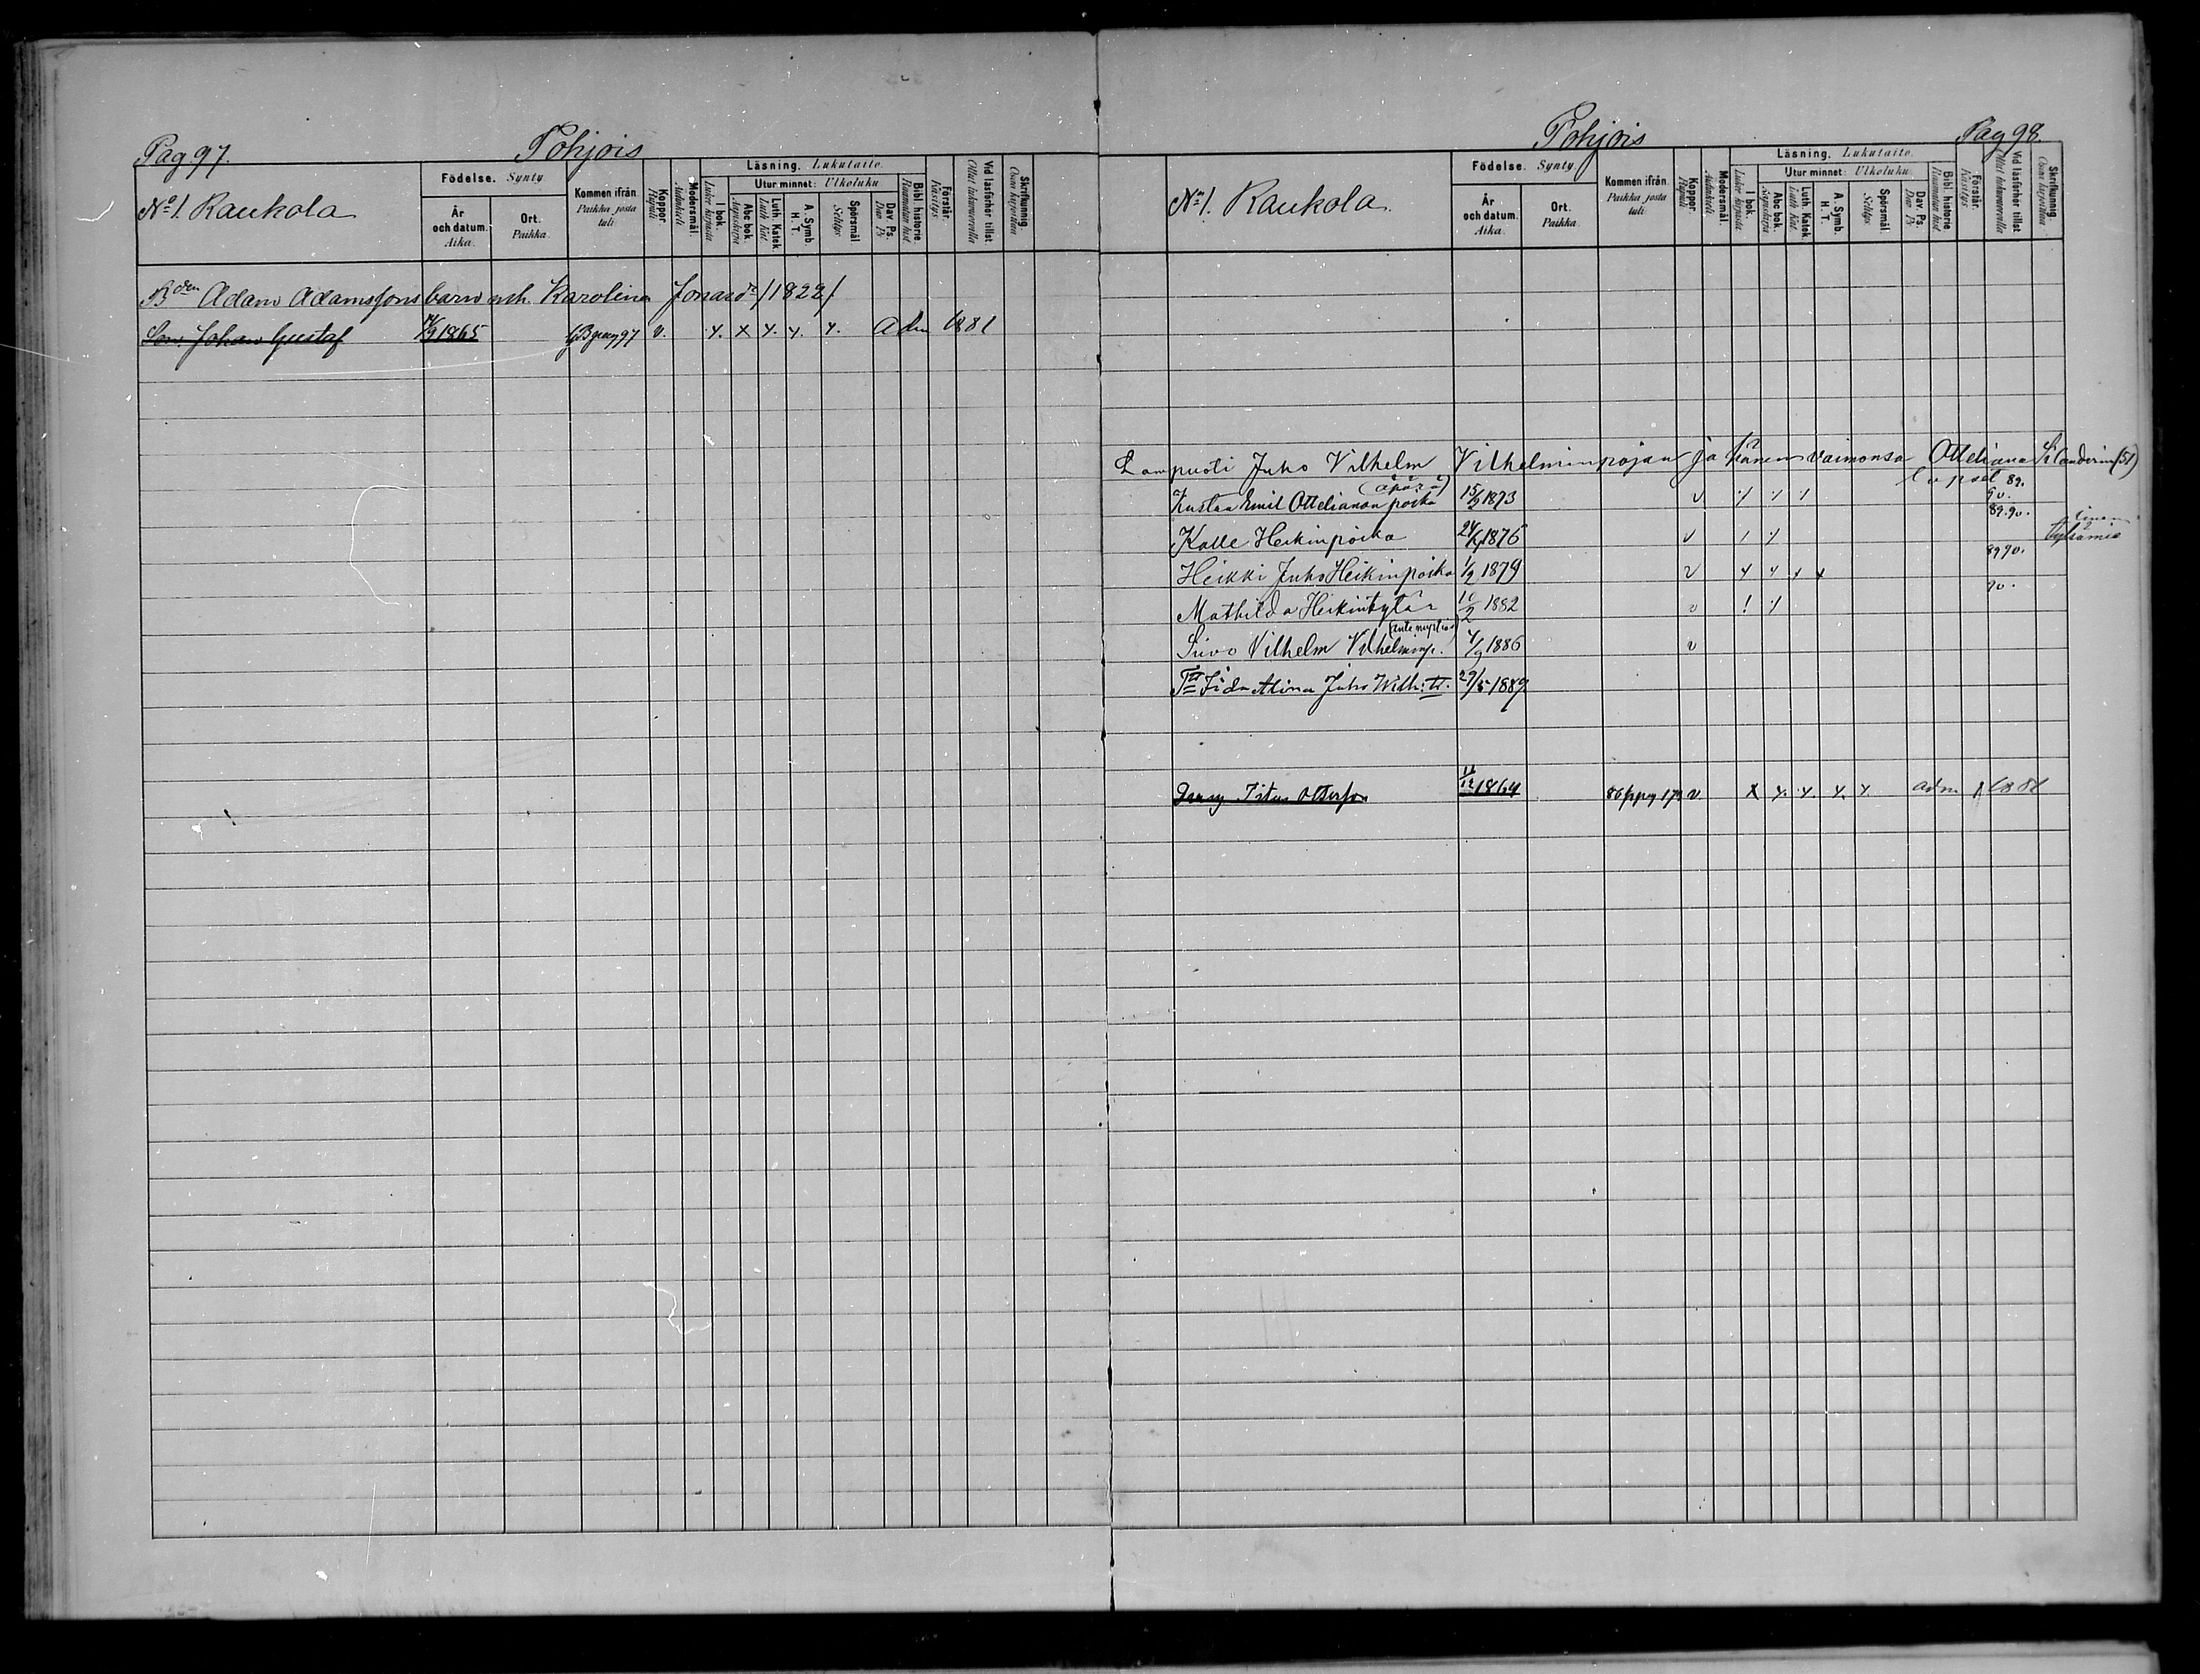 Pag 97.
Pohjois
No 1. Raukola
Födelse. Synty
År och datum. Aika.
Ort. Paikka.
Kommen ifrån. Paikka josta tuli.
Koppor. Rupuli
Modersmål. Äidinkieli
Läsning. Lukutaito.
I bok. Luker kirjasta
Utur minnet: Ulkoluku
Abc bok. Aapiskirja
Luth. Katek. Luth Kat.
A. Symb. H. T.
Spörsmål Selitys
Dav. Ps. Daw Ps
Bibl. historie Raamatun hist.
Förstår. Käsitys
Vid läsförhör tillst Ollut lukuvuorolla
Skrifkunnig Osaa kirjoittaa
Bden Adam Adamssons barn och Karolina Jonasdr /1822/
Son Johan Gustaf 1865 97 v. x x x x x Adm 1881
Pohjois
Pag 98.
No 1. Raukola.
Födelse. Synty
År och datum. Aika.
Ort. Paikka.
Kommen ifrån. Paikka josta tuli.
Koppor. Rupuli
Modersmål. Äidinkieli
Läsning. Lukutaito.
I bok. Luker kirjasta
Utur minnet: Ulkoluku
Abc bok. Aapiskirja
Luth. Katek. Luth Kat.
A. Symb. H. T.
Spörsmål. Selitys
Dav. Ps. Daw Ps
Bibl. historie Raamatun hist.
Förstår. Käsitys
Vid läsförhör tillst Ollut lukuvuorolla
Skrifkunnig. Osaa kirjoittaa
Lampuoti Juho Vilhelm Vilhelminpojan ja hänen vaimonsa Otteliana (51)
lapset 89.
(äpärä)
Kustaa Emil Ottelianan poika 15/2 1873 v 90.
Kalle Heikinpoika 1876 v 89.90.
Heikki Juho Heikinpoika 1/2 1879 v x x x x 89 90.
Mathilda Heikintytär 10/2 1882 v 90.
(ante nuptias)
Vilhelm Vilhelminp. 4/9 1886 v
Tr Fida Alina Juho Wilh: tr. 29/5 1889
Titus Ottosson 11/12 1864 v. x x x x x adm 1881